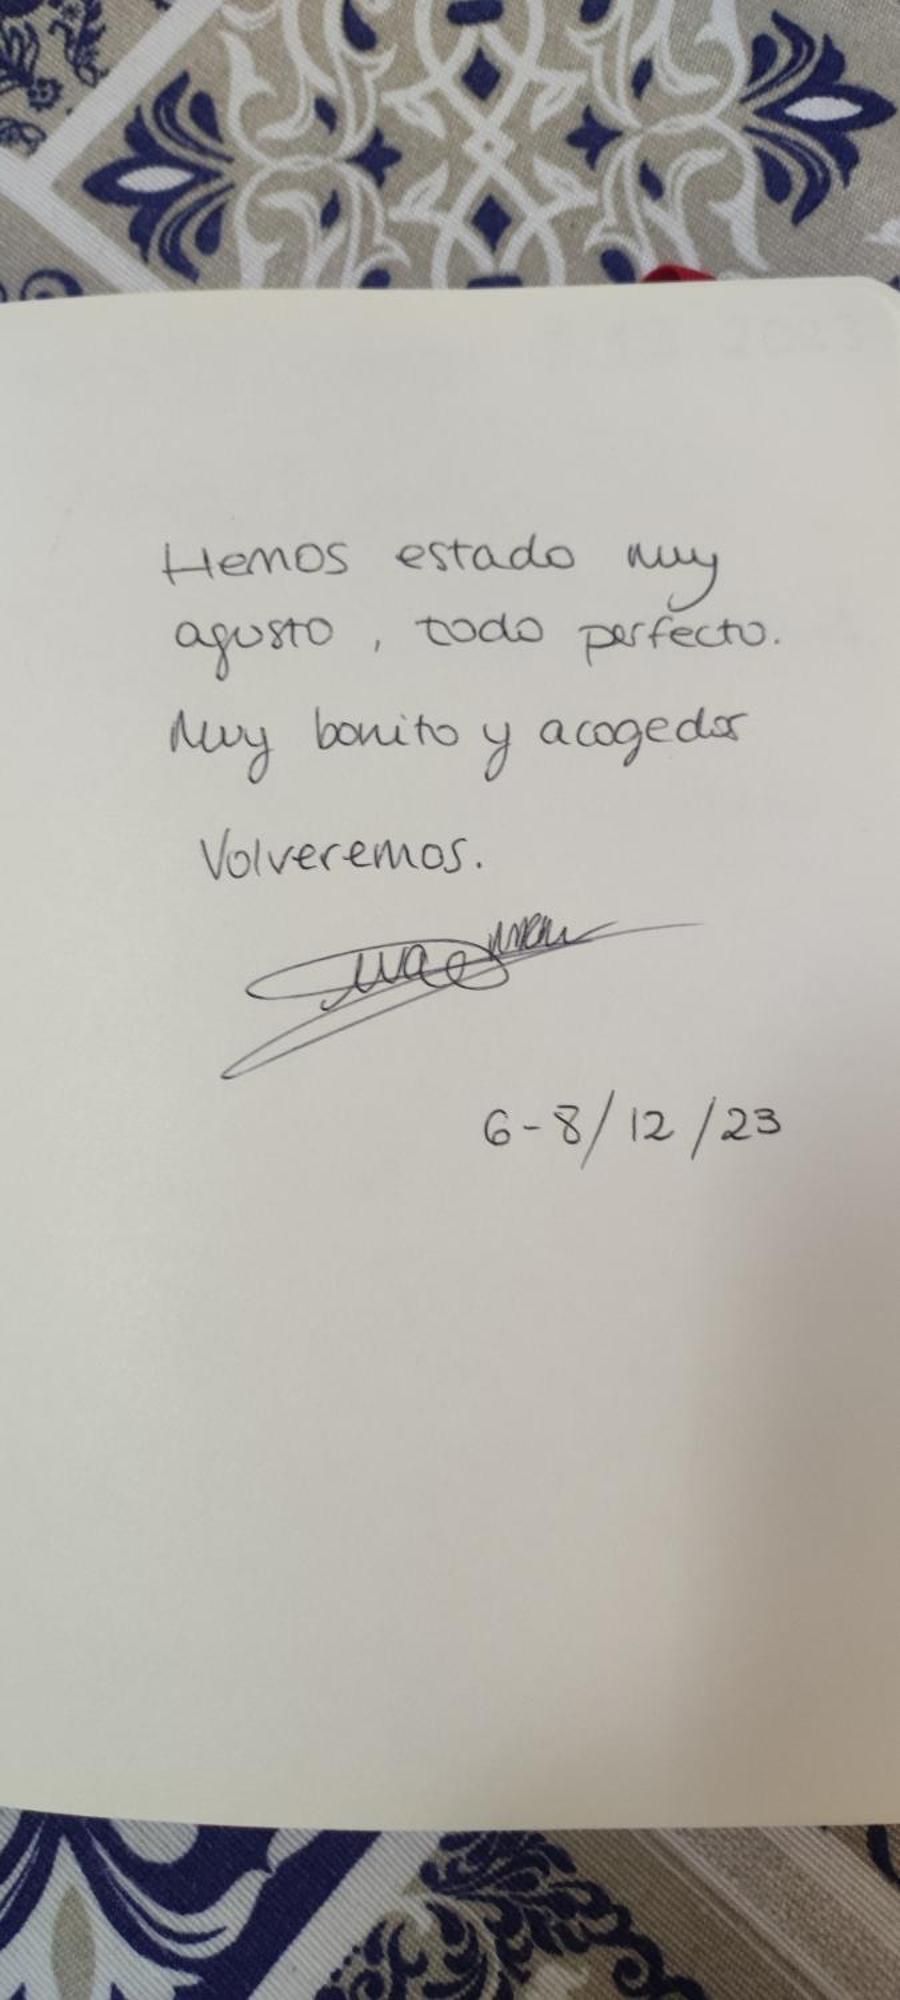 Hemos estado muy
agusto, todo perfecto.
Muy bonito y acogedor
Volveremos.
6-8/12/23